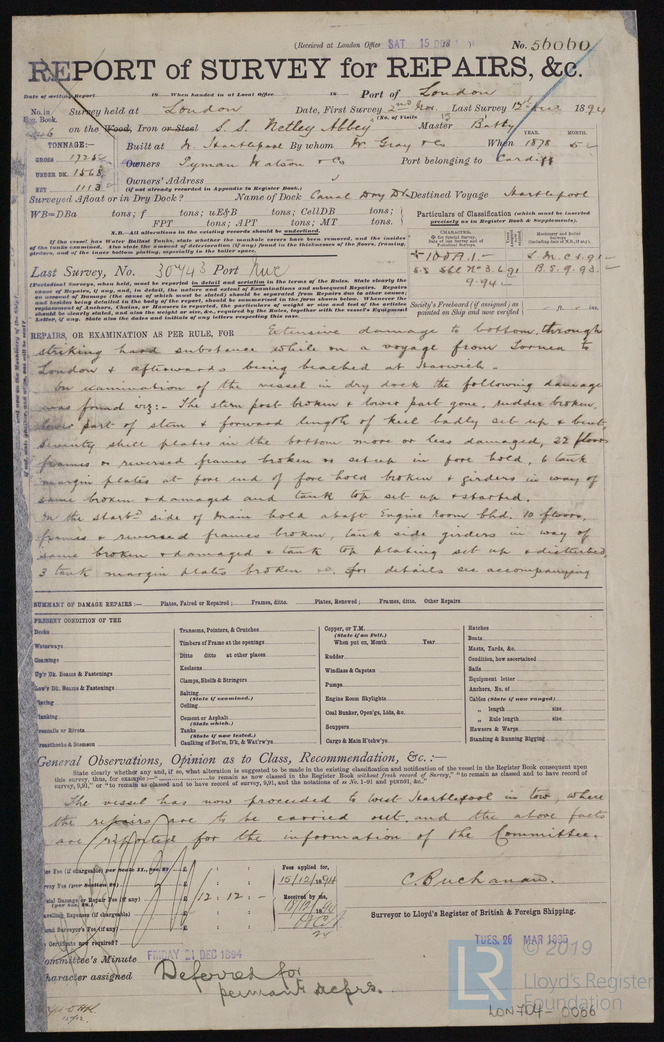 (Received at London Office SAT 15 DEC 18
No. 56060
REPORT of SURVEY for REPAIRS, &c.
Date of writing Report 18 When handed in at Local Office 18 Port of London
No. in Reg. Book. Survey held at London Date, First Survey 2nd Nov. Last Survey 12th Dec 1894
on the Wood, Iron or Steel S.S. Netley Abbey (No. of Visits 13 Master Batty
TONNAGE:— Built at W. Hartlepool By whom W. Gray & Co When 1878 YEAR. MONTH. 5
GROSS 1725
Owners Pyman Watson & Co Port belonging to Cardiff
UNDER DK. 1568
Owners' Address
NET 1113
(if not already recorded in Appendix to Register Book.)
Surveyed Afloat or in Dry Dock? Name of Dock Canal Dry Dk Destined Voyage Hartlepool
WB=DBa tons; f tons; uE&B tons; CellDB tons;
FPT tons; APT tons; MT tons.
N.B.—All alterations in the existing records should be underlined.
If the vessel has Water Ballast Tanks, state whether the manhole covers have been removed, and the insides
of the tanks examined. Also state the amount of deterioration (if any) found in the thicknesses of the floors, framing,
girders, and of the inner bottom plating, especially in the boiler room.
Particulars of Classification (which must be inserted
precisely as in Register Book & Supplements).
+100A.1.— L.M.C. 1.91—
S.S. Scl No 3. 6.91 B.S. 9.93.—
9.94—
Last Survey, No. 30743 Port Nwc
(Periodical Surveys, when held, must be reported in detail and seriatim in the terms of the Rules. State clearly the
cause of Repairs, if any, and, in detail, the nature and extent of Examinations and subsequent Repairs. Repairs
on account of Damage (the cause of which must be stated) should be separated from Repairs due to other causes;
and besides being detailed in the body of the report, should be summarised in the form shewn below. Whenever the
replacement of Anchors, Chains, or Hawsers is reported, the particulars of weight or size and test of the articles
should be clearly stated, and also the weight or size, &c., required by the Rules, together with the vessel's Equipment
Letter, if any. State also the dates and initials of any letters respecting this case.)
Society's Freeboard (if assigned) as
painted on Ship and now verified ft. in.
REPAIRS, OR EXAMINATION AS PER RULE, FOR Extensive damage to bottom through
striking hard substance while on a voyage from Lornea to
London & afterwards being beached at Harwich.—
On examination of the vessel in dry dock the following damage
was found viz:— The stern post broken & lower part gone, rudder broken,
lower part of stem & forward length of keel badly set up & bent,
seventy shell plates in the bottom more or less damaged, 22 floors
frames & reversed frames broken or set up in fore hold, 6 tank
margin plates at fore end of fore hold broken & girders in way of
same broken & damaged and tank top set up & started.
On the starbd side of Main hold abaft Engine room bhd. 10 floors,
frames & reversed frames broken, tank side girders in way of
same broken & damaged & tank top plating set up & disturbed,
3 tank margin plates broken &c. for details see accompanying
SUMMARY OF DAMAGE REPAIRS:— Plates, Faired or Repaired; Frames, ditto. Plates, Renewed; Frames, ditto. Other Repairs.
PRESENT CONDITION OF THE
Decks
Waterways
Coamings
Up'r Dk. Beams & Fastenings
Low'r Dk. Beams & Fastenings
Plating
Planking
Treenails or Rivets
Breasthooks & Stemson
Transoms, Pointers, & Crutches
Timbers of Frame at the openings
Ditto ditto at other places
Keelsons
Clamps, Shelfs & Stringers
Salting
(State if examined.)
Ceiling
Cement or Asphalt
(State which.)
Tanks
(State if now tested.)
Caulking of Bot'm, D'k, & Wat'rw'ys
Copper, or Y.M.
(State if on Felt.)
When put on, Month Year
Rudder
Windlass & Capstan
Pumps
Engine Room Skylights
Coal Bunker, Open'gs, Lids, &c.
Scuppers
Cargo & Main H'tchw'ys
Hatches
Boats
Masts, Yards, &c.
Condition, how ascertained
Sails
Equipment letter
Anchors, No. of
Cables (State if now ranged)
„ length size
„ Rule length size
Hawsers & Warps
Standing & Running Rigging
General Observations, Opinion as to Class, Recommendation, &c.:—
State clearly whether any and, if so, what alteration is suggested to be made in the existing classification and notation of the vessel in the Register Book consequent upon
this survey, thus, for example:—" to remain as now classed in the Register Book without fresh record of Survey," "to remain as classed and to have record of
survey, 9,91," or "to remain as classed and to have record of survey, 9,91, and the notations of
The vessel has now proceeded to West Hartlepool in tow, where
the repairs are to be carried out, and the above facts
are reported for the information of the Committee.
Fees applied for,
15/12/1894
Damage or Repair Fee (if any) £ 12 : 12 : —
Received by me,
C. Buchanan.
Surveyor to Lloyd's Register of British & Foreign Shipping.
Travelling Expenses (if chargeable) £
2nd Surveyor's Fee (if any) £
Certificate now required?
Committee's Minute FRIDAY 21 DEC 1894
TUES. 26 MAR 1895
Character assigned Deferred for
permant Reprs.
LR © 2019
Lloyd's Register
Foundation
LON704-0066